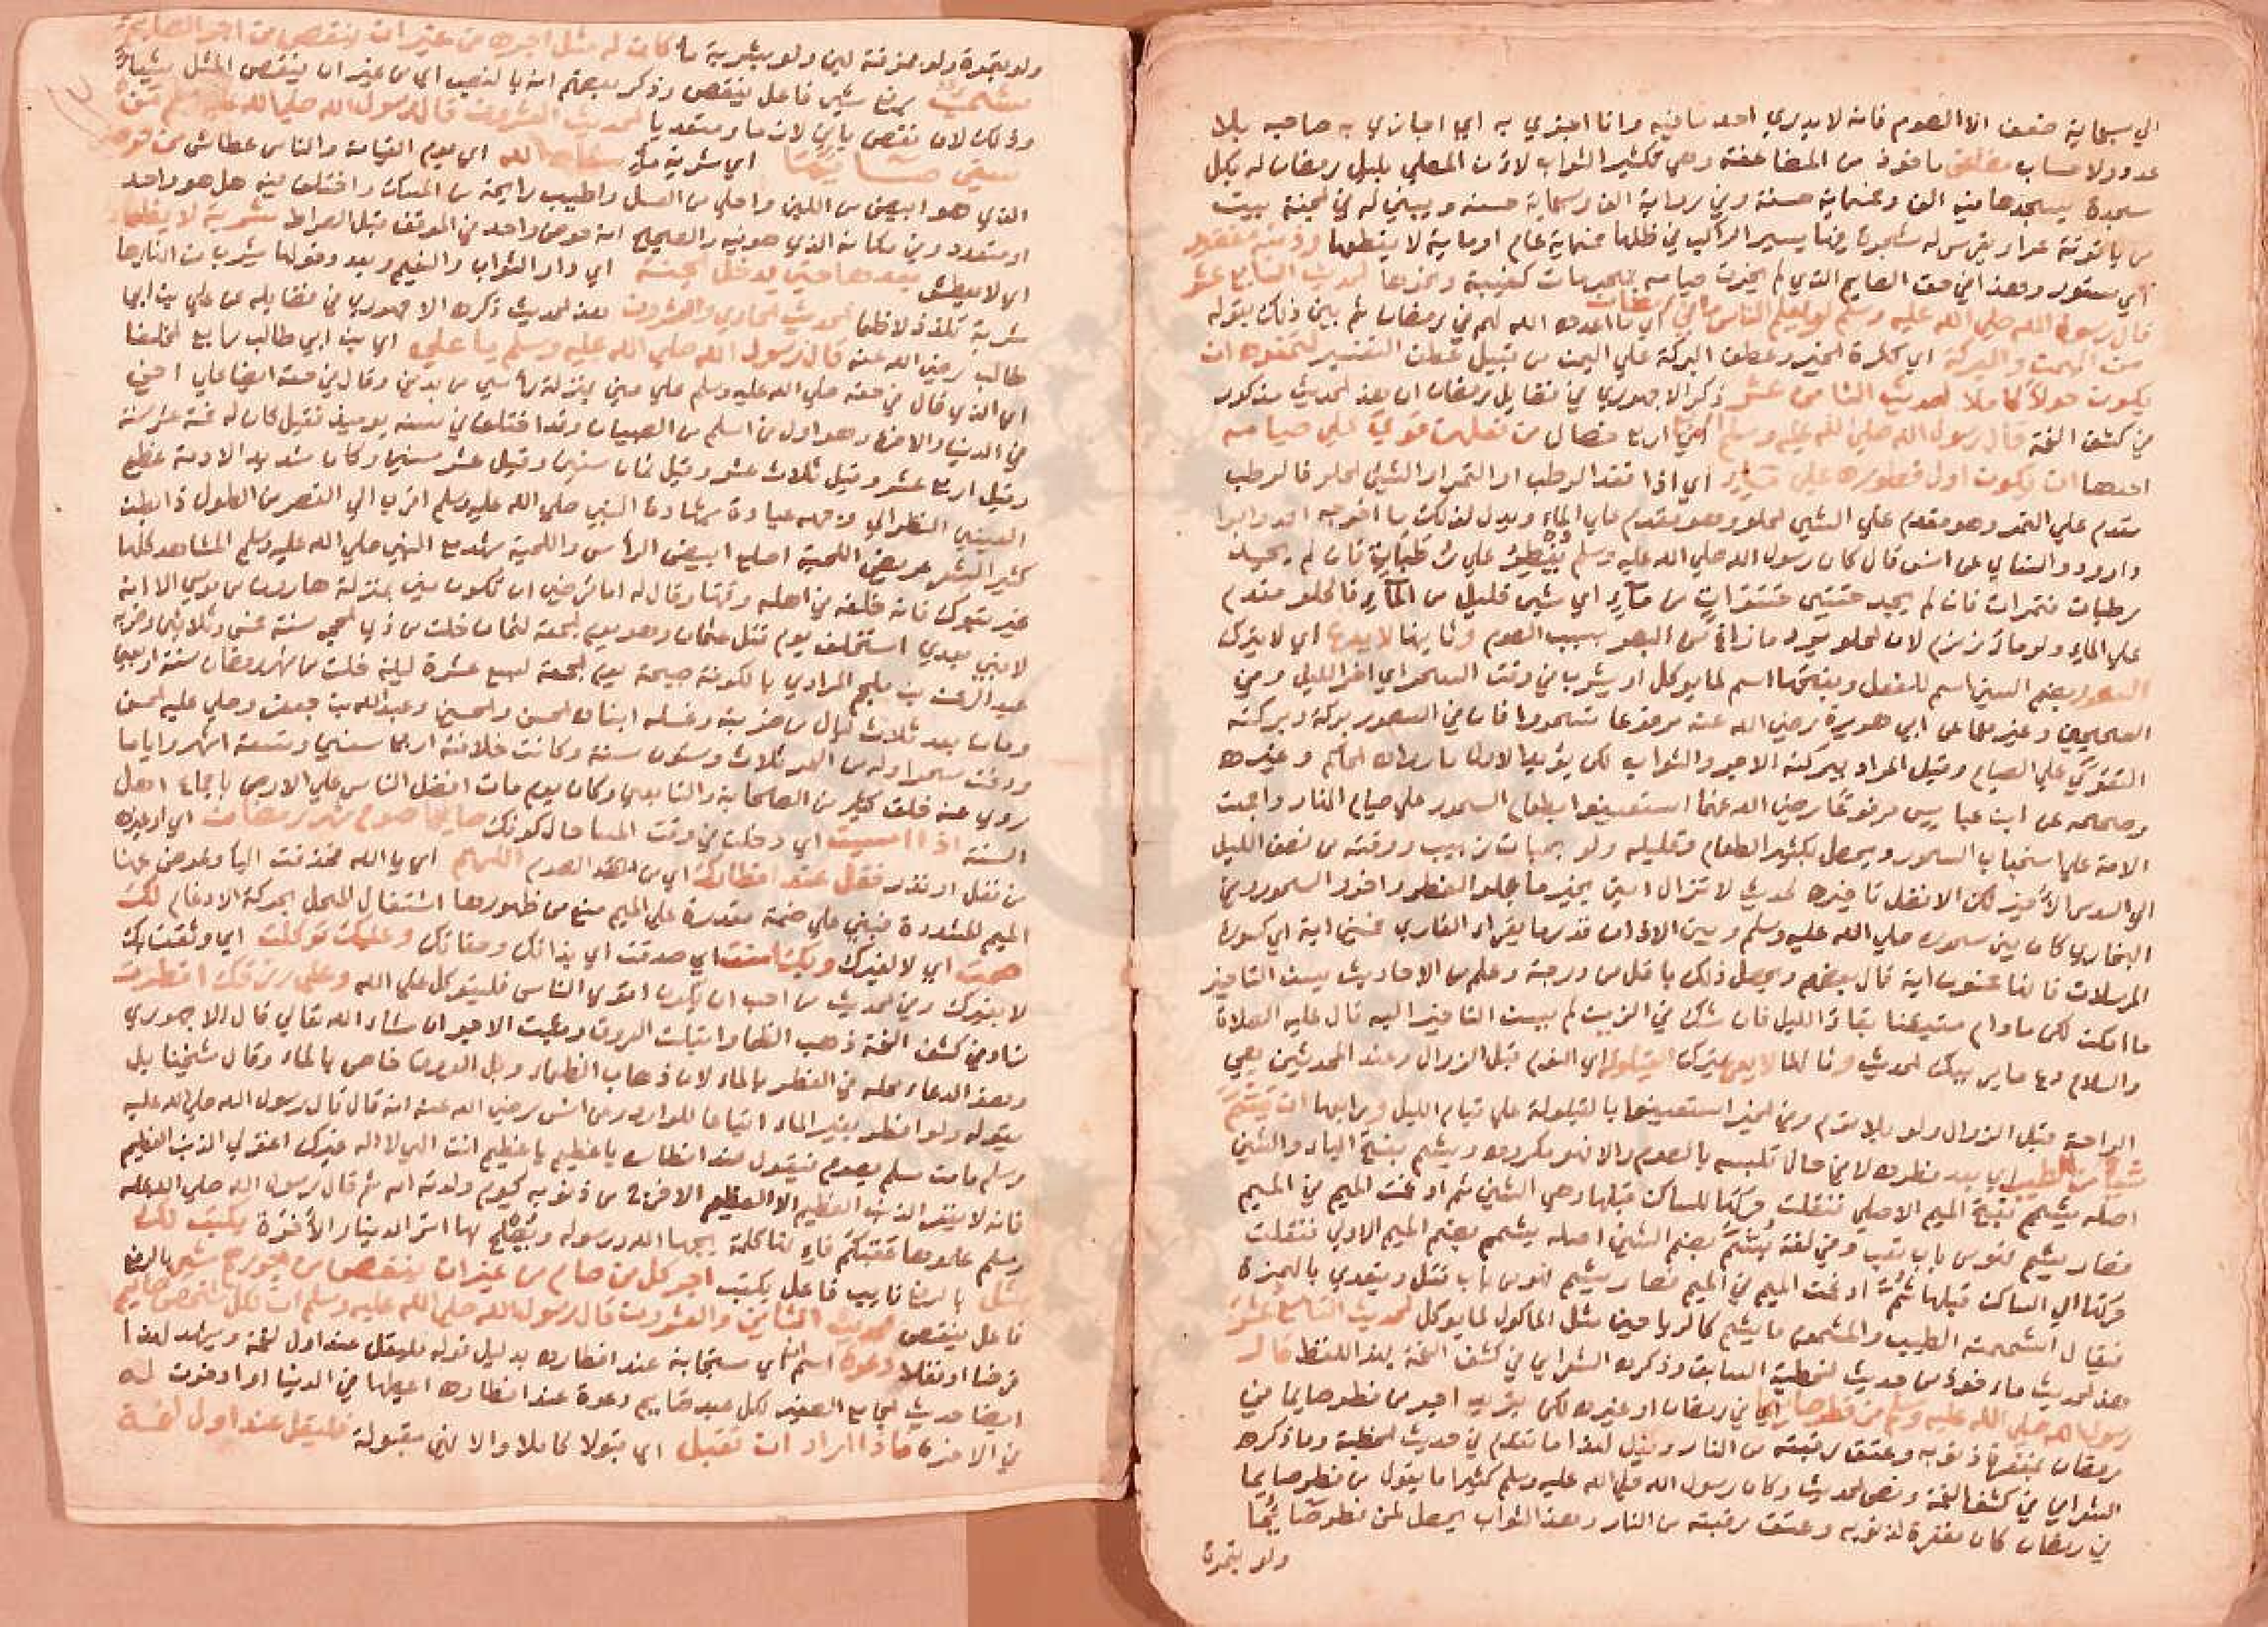 الي سبعماية ضعف الا الصوم فانه لا يدري احد ما فيه وانا اجزي به اي اجازي به صاحبه بلا
عدد ولا حساب مضاعف ماخوذ من المضاعفة وهي تكثير الثواب لان المصلي بليل رمضان له بكل
سجدة يسجدها فيه الف وخمسماية حسنة وفي رواية الف وسبعماية حسنة ويبني له في الجنة بيت
من ياقوتة حمرا ويغرس له شجرة فيها يسير الراكب في ظلها خمسماية عام او ماية لا يقطعها وذنبه مغفور
اي مستور وهذا في حق الصايم الذي لم يخرق صيامه بالمحرمات كغيبة ونحوها الحديث السابع عشر
قال رسول الله صلي الله عليه وسلم لو يعلم الناس ما في رمضان اي ما اعده الله لهم في رمضان ثم بين ذلك بقوله
من اليمن والبركة اي كثرة الخير وعطف البركة علي اليمن من قبيل عطف التفسير لتمنوه ان
يكون حولا كاملا الحديث الثامن عشر ذكر الاجهوري في فضايل رمضان ان هذا الحديث مذكور
في كشف الغمة قال رسول الله صلي الله عليه وسلم اربع خصال من فعلهن قوي علي صيامه
احدها ان يكون اول فطوره علي ماء اي اذا فقد الرطب او التمر او الشئ الحلو فالرطب
مقدم علي التمر وهو مقدم علي الشئ الحلو وهو مقدم علي الماء ويدل لذلك ما اخرجه احمد وابو
داوود والنساي عن انس قال كان رسول الله صلي الله عليه وسلم يفطر علي رطبات فان لم يجد
رطبات فتمرات فان لم يجد حسي حسوات من ماء اي شئ قليل من الماء فالحلو مقدم
علي الماء ولو ماء زمزم لان الحلو يرد ما زاغ من البصر بسبب الصوم وثانيها لا يدع اي لا يترك
السحور بضم السين اسم للفعل وبفتحها اسم لما يوكل او يشرب في وقت السحر اي اخر الليل وفي
الصحيحين وغيرهما عن ابي هريرة رضي الله عنه مرفوعا تسحروا فان في السحور بركة وبركته
التقوي علي الصيام وقيل المراد ببركته الاجر والثواب لكن يؤيد الاول ما رواه الحاكم وغيره
وصححه عن ابن عباس مرفوعا رضي الله عنهما استعينوا بطعام السحور علي صيام النهار واجمعت
الامة علي استحباب السحور ويحصل بكثير الطعام وقليله ولو بحبات زبيب ووقته من نصف الليل
الي السدس الاخير لكن الافضل تاخيره لحديث لا تزال امتي بخير ما عجلوا الفطر واخروا السحور وفي
البخاري كان بين سحوره صلي الله عليه وسلم وبين الاذان قدر ما يقرا القاري خمسين اية اي كسورة
المرسلات فانها خمسون اية قال بعضهم ويحصل ذلك باقل من درجة وعلم من الاحاديث يسن التاخير
ما امكن لكن ما دام متيقنا بقاء الليل فان شك في لم يسن التاخير اليه قال عليه الصلاة
والسلام دع ما يريبك الحديث وثالثها لا يدع يترك القيلولة اي النوم قبل الزوال وعند المحدثين هي
الراحة قبل الزوال ولو بلا نوم وفي الخبر استعينوا بالقيلولة علي قيام الليل ورابعها ان يشم
شيا من الطيب اي بعد فطره لا في حال تلبسه بالصوم والا فهو مكروه ويشم بفتح الياء والشين
اصله يشمم بفتح الميم الاصلي فنقلت حركتها للساكن قبلها وهي الشين ثم ادغمت الميم في الميم
فصار يشم فهو من باب تعب وفي لغة يشم بضم الشين اصله يشمم بضم الميم الاولي فنقلت
حركتها الي الساكن قبلها ثم ادغمت الميم في الميم فصار يشم فهو من باب قتل ويتعدي بالهمزة
فيقال اشممته الطيب والمشموم ما يشم كالرياحين مثل الماكول لما يوكل الحديث التاسع عشر
هذا الحديث ماخوذ من حديث الخطبة السابق وذكره الشعراني في كشف الغمة بهذا اللفظ قال
رسول الله صلي الله عليه وسلم من فطر صايما اي في رمضان او غيره لكن يزيد اجر من فطر صايما في
رمضان بمغفرة ذنوبه وعتق رقبته من النار ودليل هذا ما تقدم في حديث الخطبة وما ذكره
الشعراني في كشف الغمة ونص الحديث وكان رسول الله صلي الله عليه وسلم كثيرا ما يقول من فطر صايما
في رمضان كان مغفرة لذنوبه وعتق رقبته من النار وهذا الثواب يحصل لمن فطر صايما
ولو بتمرة
ولو بتمرة ولو بمذقة لبن ولو بشربة ماء كان له مثل اجره من غير ان ينقص من اجر الصايم
شئ برفع شئ فاعل ينقص وذكر بعضهم انه بالنصب اي من غير ان ينقص المثل شيا
وذلك لان نقص ياتي لازما ومتعديا الحديث العشرون قال رسول الله صلي الله عليه وسلم من
سقي صايما اي شربة ماء سقاه الله اي يوم القيامة والناس عطاش من حوضي
الذي هو ابيض من اللبن واحلي من العسل واطيب رايحة من المسك واختلف فيه هل هو واحد
او متعدد وفي مكانه الذي هو فيه والصحيح انه حوض واحد في الموقف قبل الصراط شربة لا يظما
اي لا يعطش بعدها حتي يدخل الجنة اي دار الثواب والنعيم وبعد دخولها يشرب من انهارها
شربة تلذذ لا ظما الحديث الحادي والعشرون هذا الحديث ذكره الاجهوري في فضايله عن علي بن ابي
طالب رضي الله عنه قال رسول الله صلي الله عليه وسلم يا علي اي بن ابي طالب رابع الخلفا
اي الذي قال في حقه صلي الله عليه وسلم علي مني بمنزلة راسي من بدني وقال في حقه ايضا علي اخي
في الدنيا والاخرة وهو اول من اسلم من الصبيان وقد اختلف في سنه يوميذ فقيل كان له خمسة عشر سنة
وقيل اربع عشر وقيل ثلاث عشر وقيل ثمان سنين وقيل عشر سنين وكان شديد الادمة عظيم
العينين النظر الي وجهه عبادة بشهادة النبي صلي الله عليه وسلم اقرب الي القصر من الطول ذا بطن
كثير الشعر عريض اللحية اصلع ابيض الراس واللحية شهد مع النبي صلي الله عليه وسلم المشاهد كلها
غير تبوك فانه خلفه في اهله وقال له اما ترضي ان تكون مني بمنزلة هارون من موسي الا انه
لا نبي بعدي استخلف يوم قتل عثمان وهو يوم الجمعة لثمان خلت من ذي الحجة سنة خمس وثلاثين وضربه
عبد الرحمن بن ملجم المرادي بالكوفة صبيحة يوم الجمعة لسبع عشرة ليلة خلت من شهر رمضان سنة اربعين
ومات بعد ثلاث ليال من ضربته وغسله ابناه الحسن والحسين وعبد الله بن جعفر وصلي عليه الحسن
ودفن سحرا وله من العمر ثلاث وستون سنة وكانت خلافته اربع سنين وتسعة اشهر واياما
روي عنه خلق كثير من الصحابة والتابعين وكان يوم مات افضل الناس علي الارض باجماع اهل
السنة اذا امسيت اي دخلت في وقت المسا حال كونك صايما صوم شهر رمضان اي او غيره
من نفل او نذر فقل عند افطارك اي من الصوم اللهم اي يا الله فحذفت اليا وعوض عنها
الميم المشددة فبني علي ضمة مقدرة علي الميم منع من ظهورها اشتغال المحل بحركة الادغام لك
صمت اي لا لغيرك وبك امنت اي صدقت اي بذاتك وصفاتك وعليك توكلت اي وثقت بك
لا بغيرك وفي الحديث من احب ان يكون اقوي الناس فليتوكل علي الله وعلي رزقك افطرت
زاد في كشف الغمة ذهب الظما وابتلت العروق وثبت الاجر ان شاء الله تعالي قال الاجهوري
وهذا الدعاء محله في الفطر بالماء لان ذهاب الظماء وبل العروق خاص بالماء وقال شيخنا بل
يقوله ولو افطر بغير الماء اتباعا للوارد وعن انس رضي الله عنه انه قال قال رسول الله صلي الله عليه
وسلم ما من مسلم يصوم فيقول عند افطاره يا عظيم يا عظيم انت الهي لا اله غيرك اغفر لي الذنب العظيم
فانه لا يغفر الذنب العظيم الا العظيم الا خرج من ذنوبه كيوم ولدته امه ثم قال رسول الله صلي الله عليه
وسلم علموها عقبكم فانها كلمة يحبها الله ورسوله ويصلح بها امر الدنيا والاخرة يكتب لك
مثل بالرفع نايب فاعل يكتب اجر كل من صام من غير ان ينقص من اجورهم شئ بالرفع
فاعل ينقص الحديث الثاني والعشرون قال رسول الله صلي الله عليه وسلم ان لكل صايم
فرضا او نفلا دعوة اي مستجابة عند افطاره بدليل قوله فليقل عند اول لقمة ويشهد لهذا
ايضا حديث الجامع الصغير لكل عبد صايم دعوة عند افطاره اعطيها في الدنيا او ادخرت له
في الاخرة فاذا اراد ان تقبل اي قبولا كاملا والا فهي مقبولة فليقل عند اول لقمة